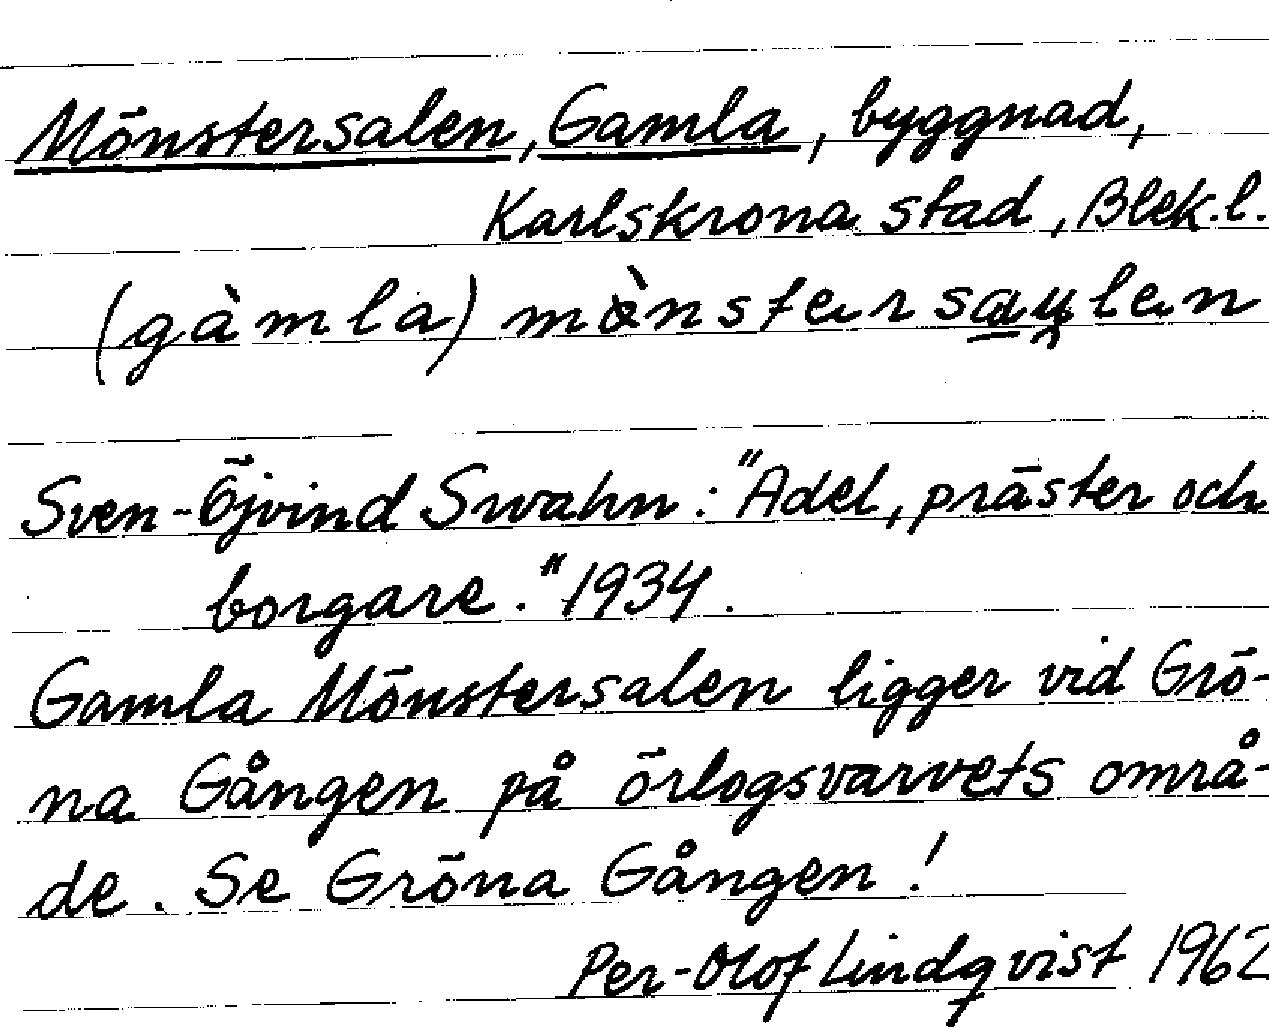 Mönstersalen, Gamla, byggnad,
Karlskrona stad, Blek.l.
(gàmla) mø̀nstersau̯len
Sven-Öjvind Swahn: "Adel, präster och
borgare." 1934.
Gamla Mönstersalen ligger vid Grö-
na Gången på örlogsvarvets områ-
de. Se Gröna Gången!
Per-Olof Lindqvist 1962